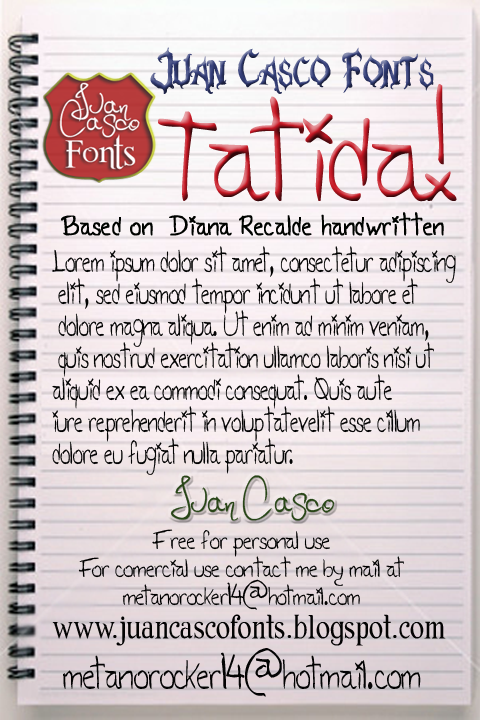 Juan Casco Fonts
Juan
Casco
Fonts
Tatida!
Based on Diana Recalde handwritten
Lorem ipsum dolor sit amet, consectetur adipiscing
elit, sed eiusmod tempor incidunt ut labore et
dolore magna aliqua. Ut enim ad minim veniam,
quis nostrud exercitation ullamco laboris nisi ut
aliquid ex ea commodi consequat. Quis aute
iure reprehenderit in voluptatevelit esse cillum
dolore eu fugiat nulla pariatur.
Juan Casco
Free for personal use
For comercial use contact me by mail at
metanorocker14@hotmail.com
www.juancascofonts.blogspot.com
metanorocker14@hotmail.com